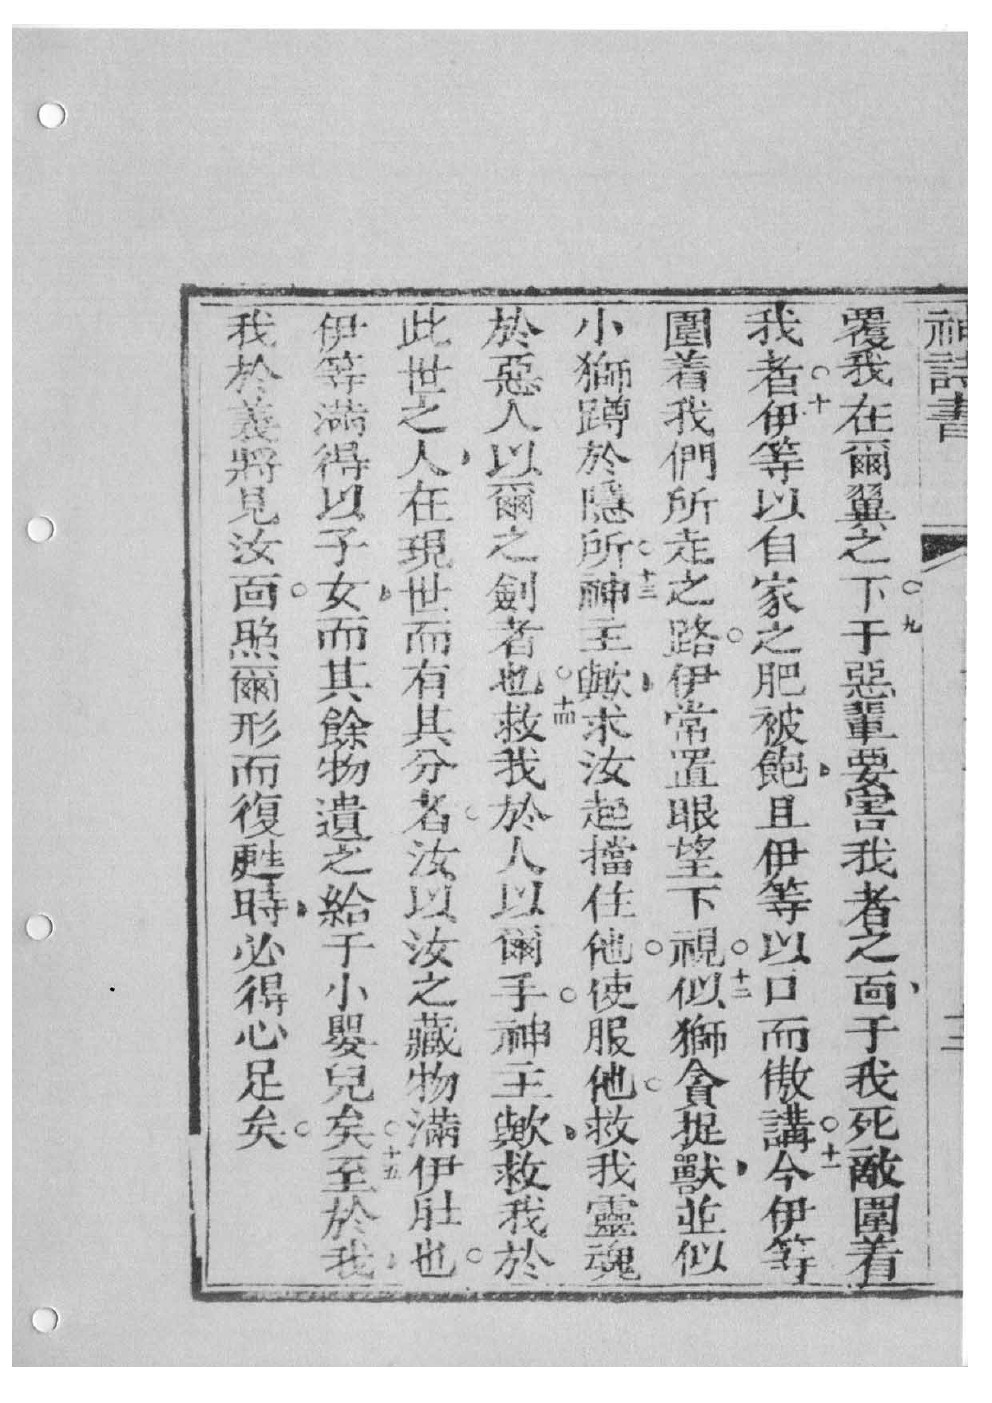 神詩書
三
覆我在爾翼之下○九于惡輩要害我者之面、于我死敵圍着
我者○十伊等以自家之肥被飽、且伊等以口而傲講○十一今伊等
圍着我們所走之路○伊常置眼望下視○十二似獅貪捉獸、並似
小獅蹲於隱所○十三神主歟、求汝起擋住他○使服他○救我靈魂
於惡人以爾之劍者也○十四救我於人以爾手○神主歟、救我於
此世之人、在現世而有其分者○汝以汝之藏物滿伊肚也○
伊等滿得以子女、而其餘物遺之給于小嬰兒矣○十五至於我、
我於義將見汝面○照爾形而復甦時、必得心足矣○